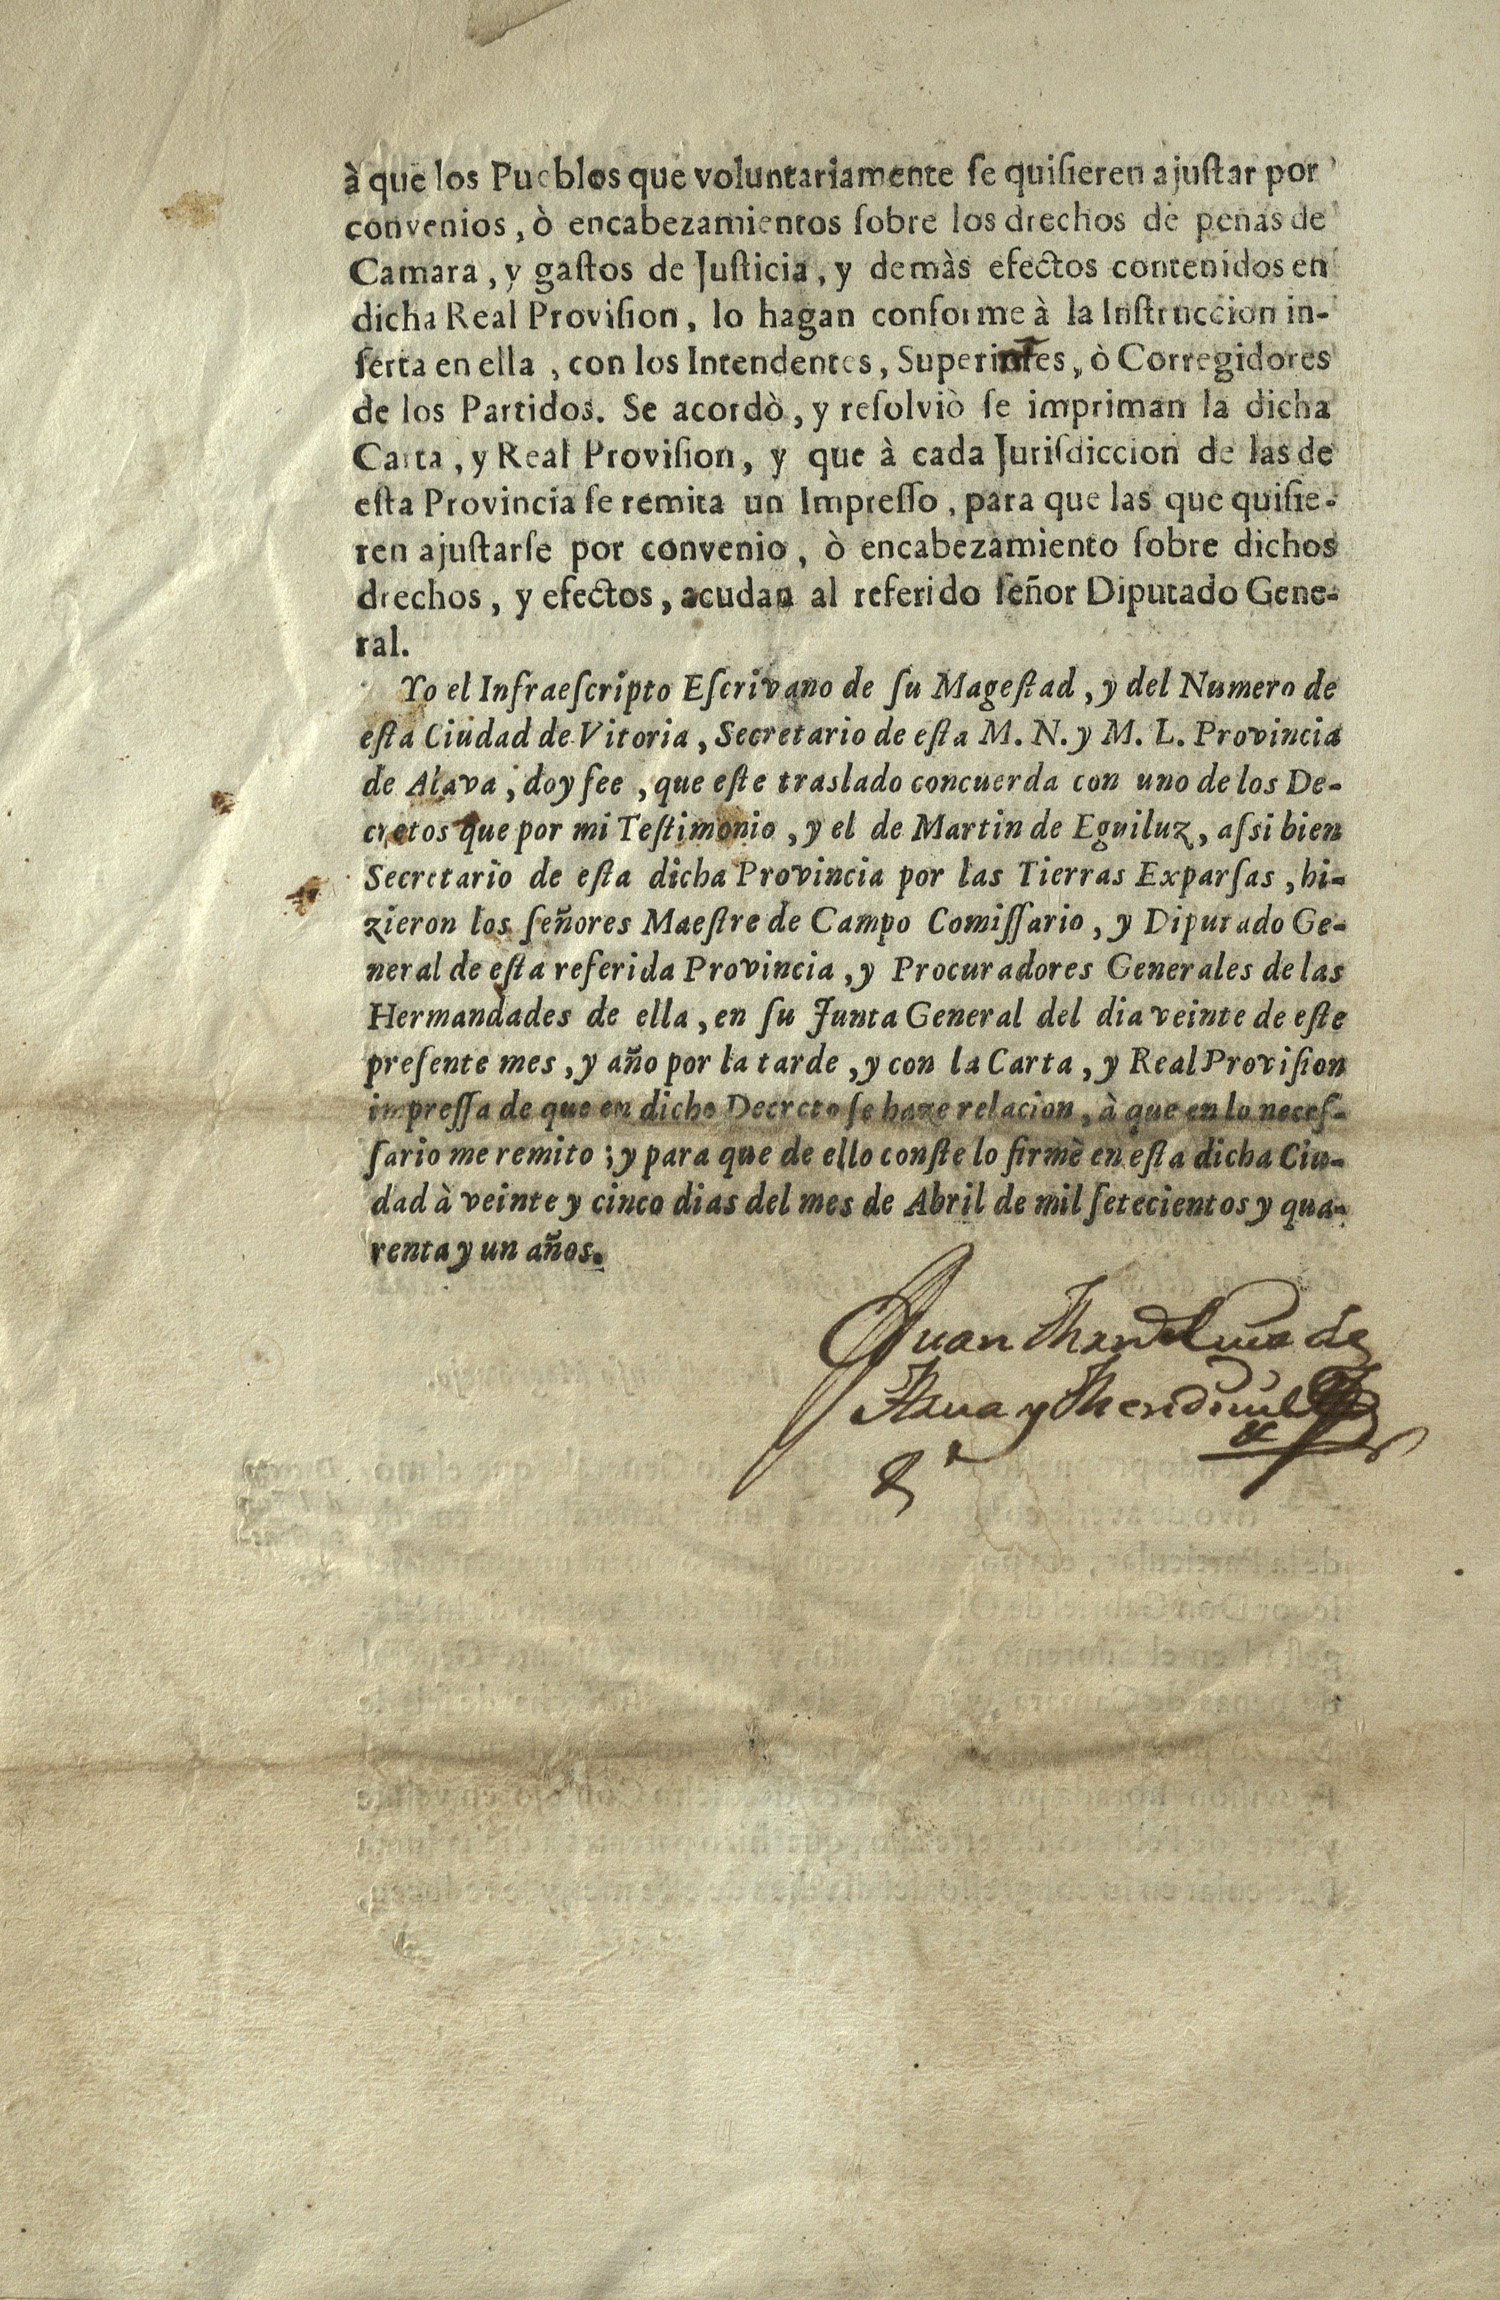 à que los Pueblos que voluntariamente ſe quiſieren ajuſtar por
convenios, ò encabezamientos ſobre los drechos de penas de
Camara, y gaſtos de Juſticia, y demàs efectos contenidos en
dicha Real Proviſion, lo hagan conforme à la Inſtruccion in-
ſerta en ella, con los Intendentes, Superintes, ò Corregidores
de los Partidos. Se acordò, y reſolviò ſe impriman la dicha
Carta, y Real Proviſion, y que à cada Juriſdiccion de las de
eſta Provincia ſe remita un Impreſſo, para que las que quiſie-
ren ajuſtarſe por convenio, ò encabezamiento ſobre dichos
drechos, y efectos, acudan al referido ſeñor Diputado Gene-
ral.
Yo el Infraeſcripto Eſcrivano de ſu Mageſtad, y del Numero de
eſta Ciudad de Vitoria, Secretario de eſta M. N. y M. L. Provincia
de Alava, doy fee, que eſte traslado concuerda con uno de los De-
cretos que por mi Teſtimonio, y el de Martin de Eguiluz, aſsi bien
Secretario de eſta dicha Provincia por las Tierras Exparſas, hi-
zieron los ſeñores Maeſtre de Campo Comiſſario, y Diputado Ge-
neral de eſta referida Provincia, y Procuradores Generales de las
Hermandades de ella, en ſu Junta General del dia veinte de eſte
preſente mes, y año por la tarde, y con la Carta, y Real Proviſion
impreſſa de que en dicho Decreto ſe haze relacion, à que en lo neceſ-
ſario me remito; y para que de ello conſte lo firmè en eſta dicha Ciu-
dad à veinte y cinco dias del mes de Abril de mil ſetecientos y qua-
renta y un años.
Juan de
y